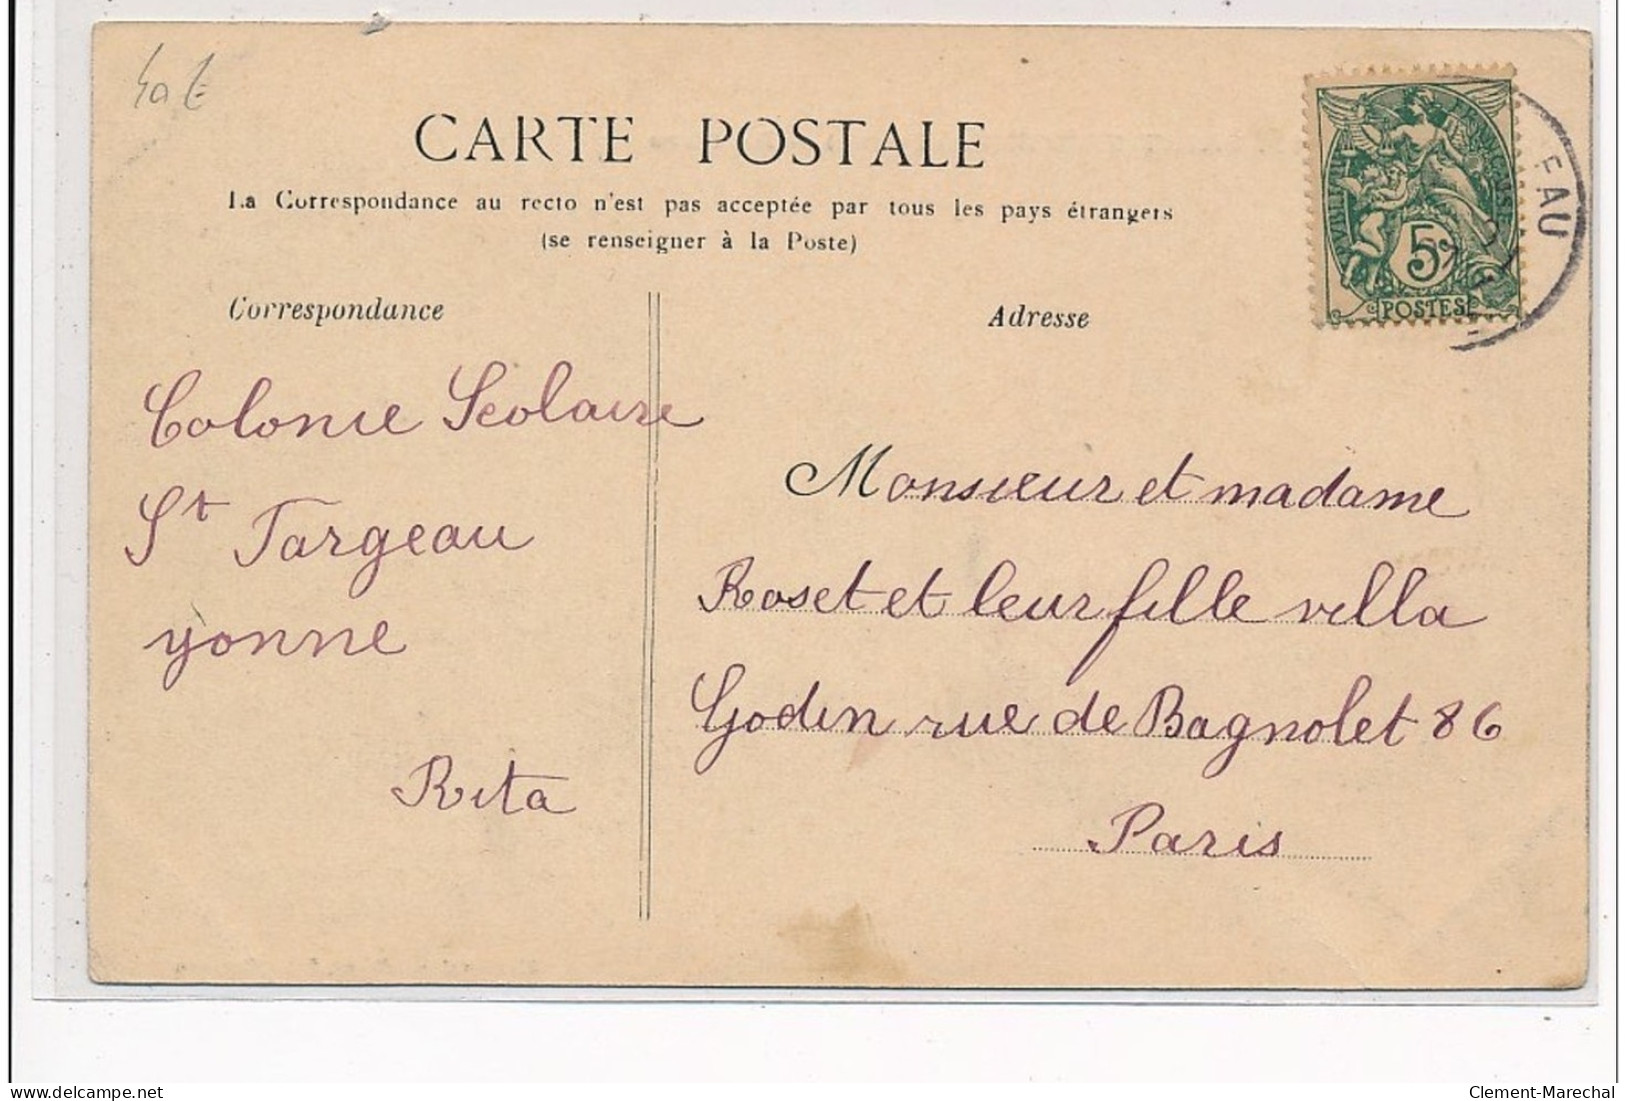 CARTE POSTALE
La Correspondance au recto n'est pas acceptée par tous les pays étrangers
(se renseigner à la Poste)
Correspondance
Adresse
5c
POSTES
EAU
Colonie Scolaire
St Targeau
yonne
Rita
Monsieur et madame
Roset et leur fille villa
Godin rue de Bagnolet 86
Paris
Clement-Marechal